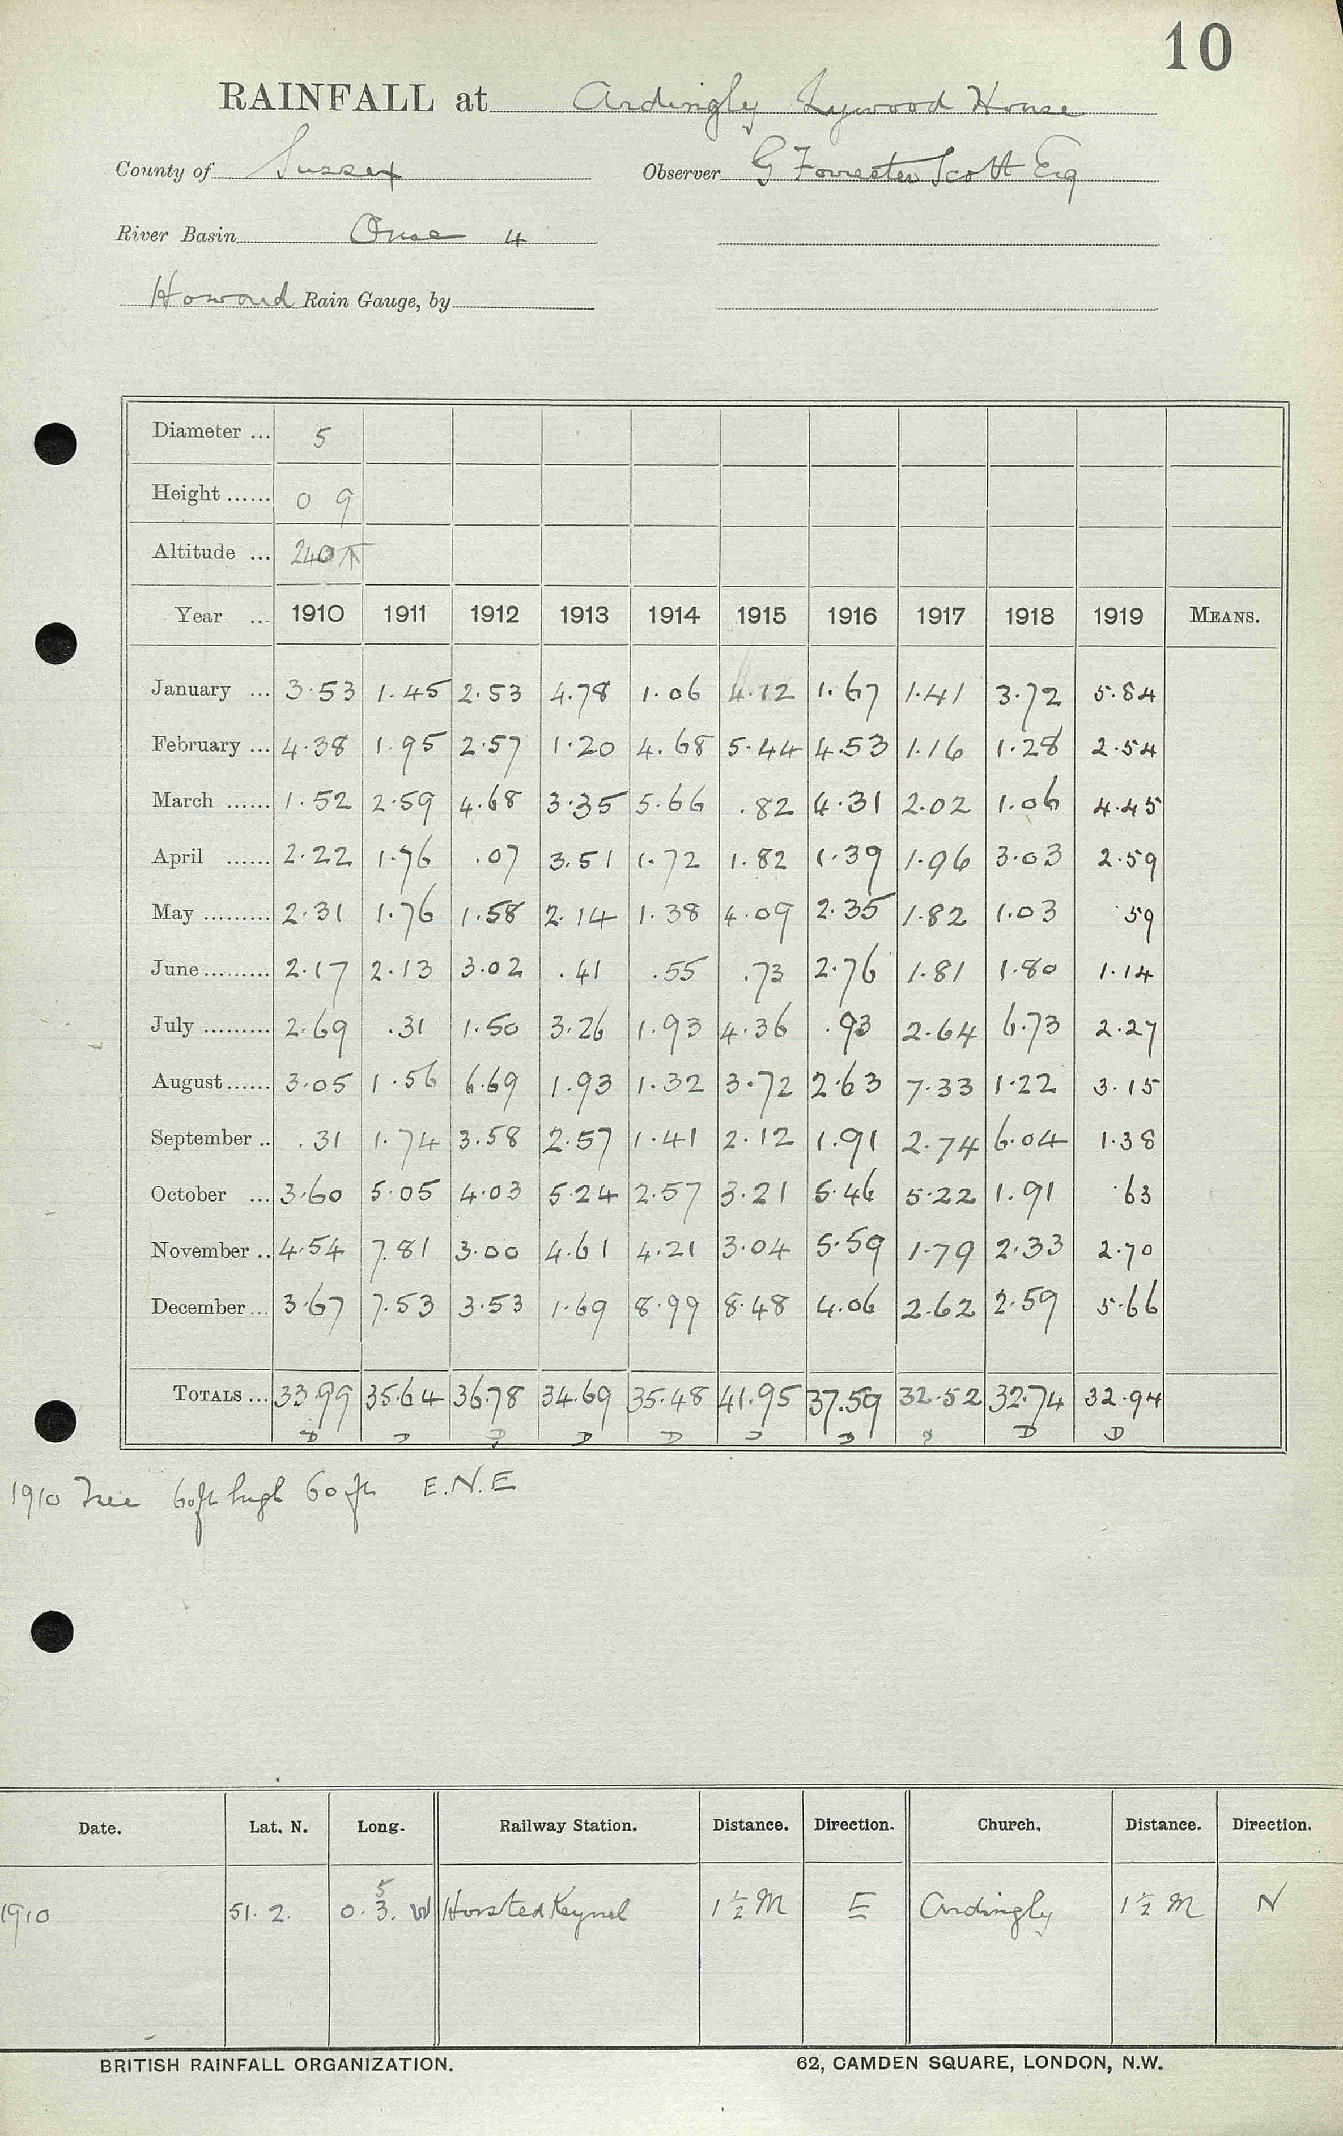 10
RAINFALL at Ardingly Lywood House
County of Sussex Observer G Forrester Scott Esq
River Basin Ouse 4
Howard Rain Gauge, by
Diameter ... 5
Height ...... 0 9
Altitude ... 240
Year ... 1910 1911 1912 1913 1914 1915 1916 1917 1918 1919 MEANS.
January ... 3.53 1.45 2.53 4.78 1.06 4.12 1.67 1.41 3.72 5.84
February ... 4.38 1.95 2.57 1.20 4.68 5.44 4.53 1.16 1.28 2.54
March ...... 1.52 2.59 4.68 3.35 5.66 .82 4.31 2.02 1.06 4.45
April ...... 2.22 1.76 .07 3.51 1.72 1.82 1.39 1.96 3.03 2.59
May ......... 2.31 1.76 1.58 2.14 1.38 4.09 2.35 1.82 1.03 .59
June ......... 2.17 2.13 3.02 .41 .55 .73 2.76 1.81 1.80 1.14
July ......... 2.69 .31 1.50 3.26 1.93 4.36 .93 2.64 6.73 2.27
August ...... 3.05 1.56 6.69 1.93 1.32 3.72 2.63 7.33 1.22 3.15
September .. .31 1.74 3.58 2.57 1.41 2.12 1.91 2.74 6.04 1.38
October ... 3.60 5.05 4.03 5.24 2.57 3.21 5.46 5.22 1.91 .63
November .. 4.54 7.81 3.00 4.61 4.21 3.04 5.59 1.79 2.33 2.70
December ... 3.67 7.53 3.53 1.69 8.99 8.48 4.06 2.62 2.59 5.66
TOTALS ... 33.99 35.64 36.78 34.69 35.48 41.95 37.59 32.52 32.74 32.94
D D D D D D D D D
1910 Tree 60ft high 60 ft E.N.E
Date. Lat. N. Long. Railway Station. Distance. Direction. Church. Distance. Direction.
5
1910 51. 2. 0. 3. W Horsted Keynes 1½ M E Ardingly 1½ M N
BRITISH RAINFALL ORGANIZATION. 62, CAMDEN SQUARE, LONDON, N.W.